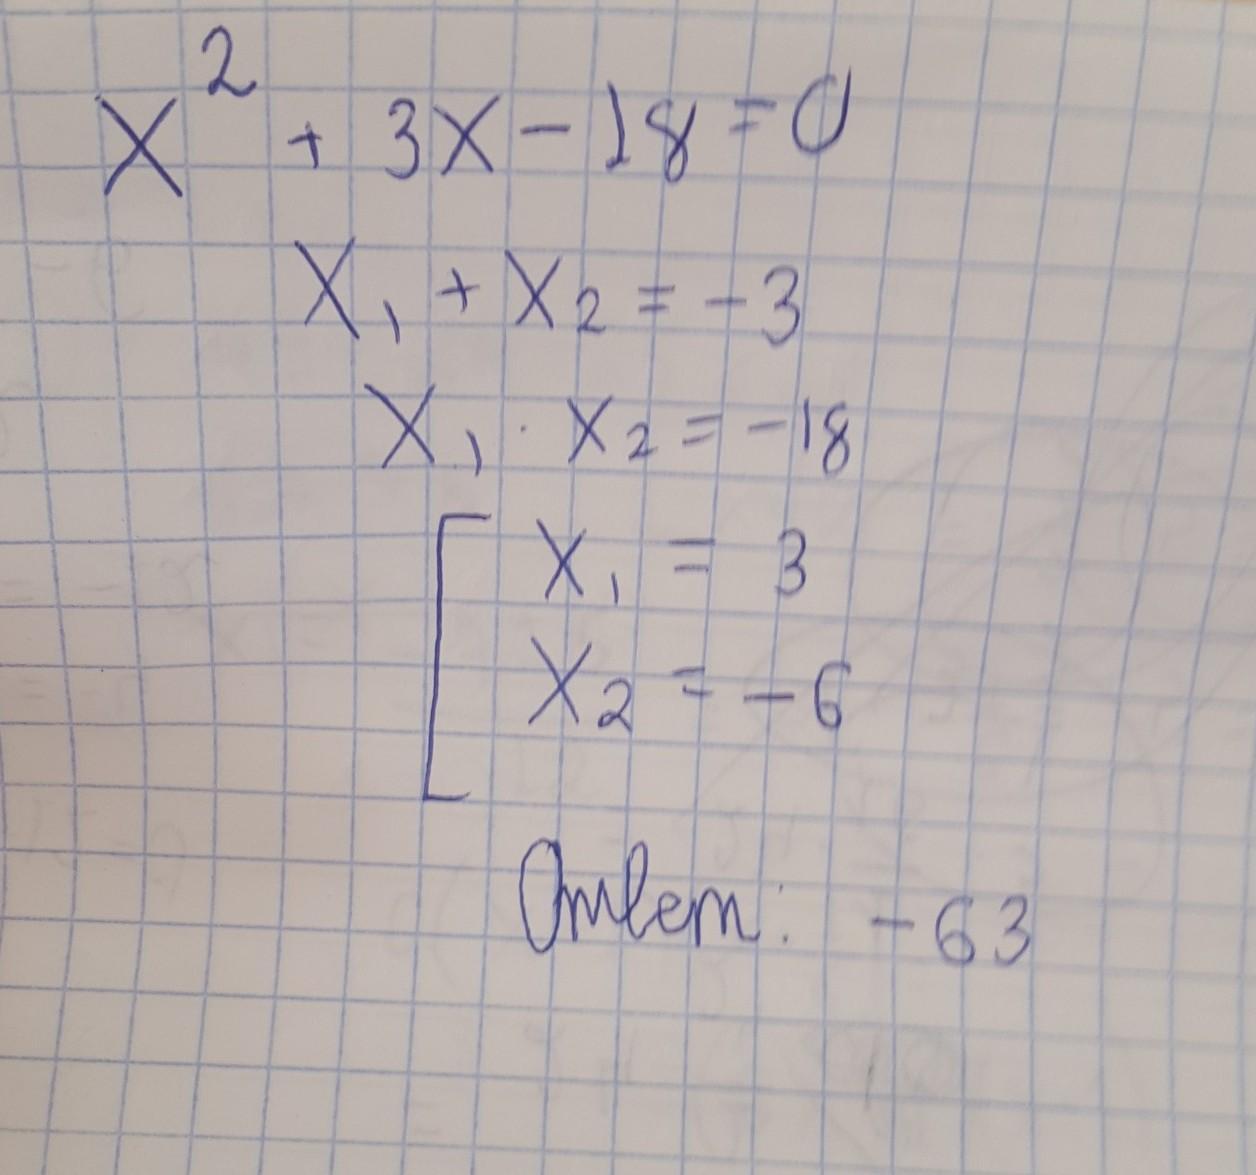 x² + 3x - 18 = 0
x₁ + x₂ = -3
x₁ · x₂ = -18
x₁ = 3
x₂ = -6
Ответ: -63